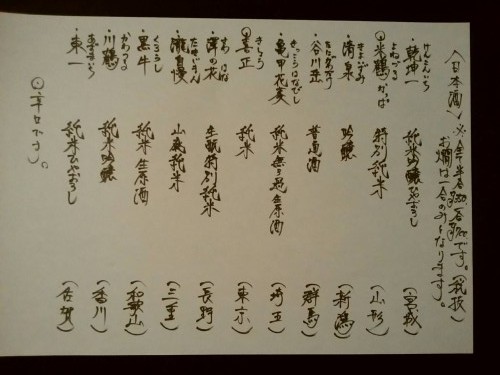 〈日本酒〉※全半合 一合 です。(税抜)
お燗は一合のみとなります)。
けんこんいち
・乾坤一 純米吟醸ひやおろし (宮城)
よねづる
◎米鶴かっぱ 特別純米 (山形)
きよいずみ
・清泉 吟醸 (新潟)
たにがわだけ
・谷川岳 普通酒 (群馬)
きっこうはなびし
・亀甲花菱 純米無ろ過生原酒 (埼玉)
きしょう
◎喜正 純米 (東京)
さわ はな
・澤の花 生酛特別純米 (長野)
たきじまん
・瀧自慢 山廃純米 (三重)
くろうし
・黒牛 純米生原酒 (和歌山)
かわつる
・川鶴 純米吟醸 (香川)
あづまいち
・東一 純米ひやおろし (佐賀)
◎辛口です。